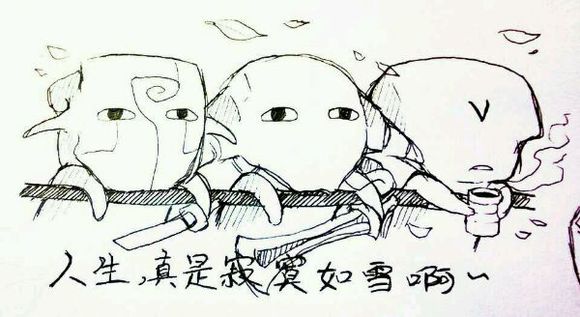 人生,真是寂寞如雪啊~